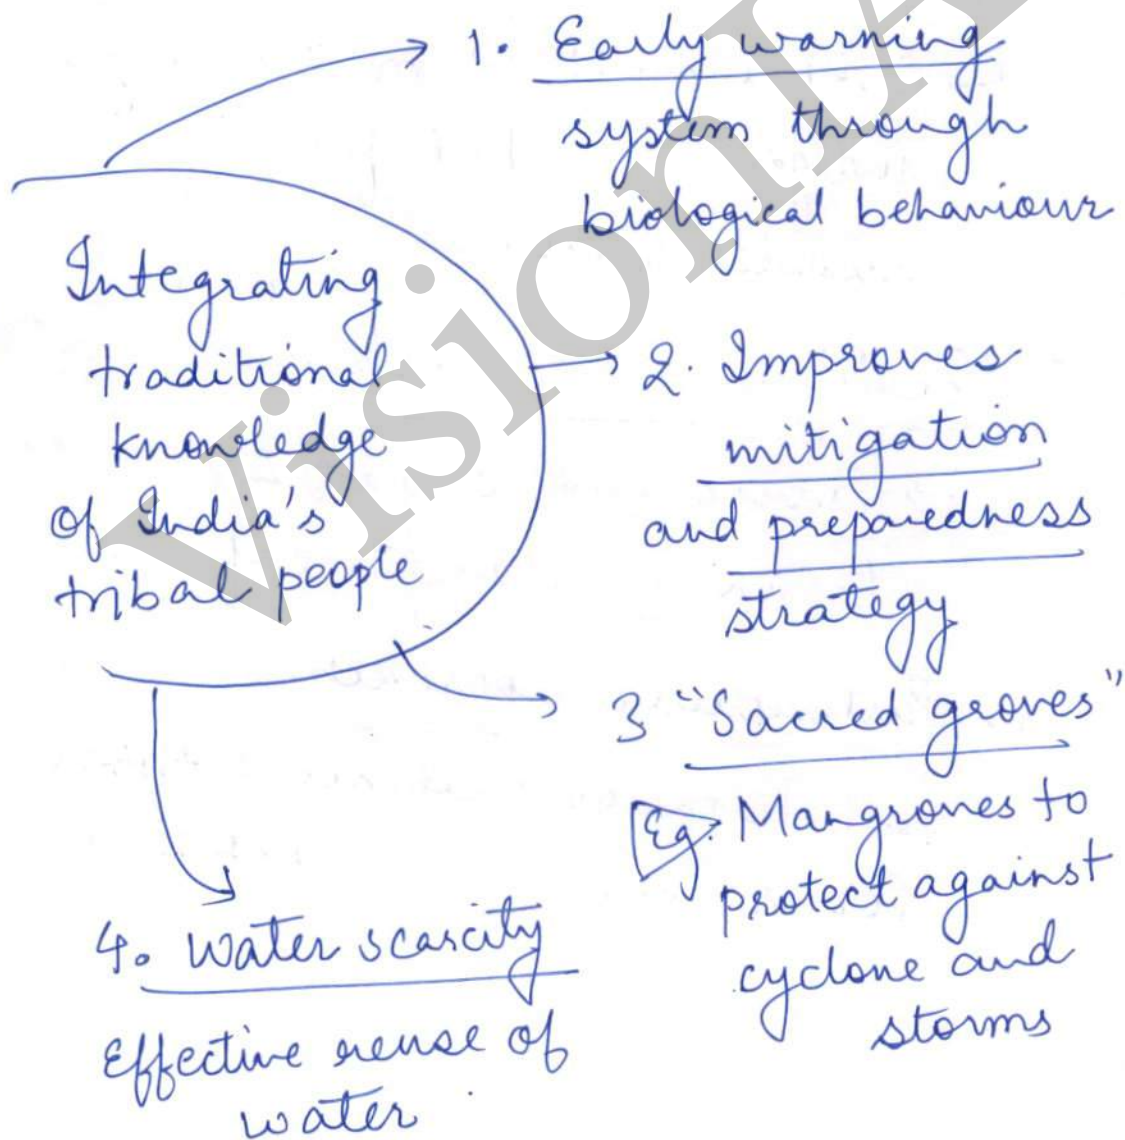 Integrating
traditional
knowledge
of India's
tribal people
1. Early warning
system through
biological behaviour
2. Improves
mitigation
and preparedness
strategy
3 "Sacred groves"
Eg. Mangroves to
protect against
cyclone and
storms
4. Water scarcity
Effective reuse of
water
VisionIA